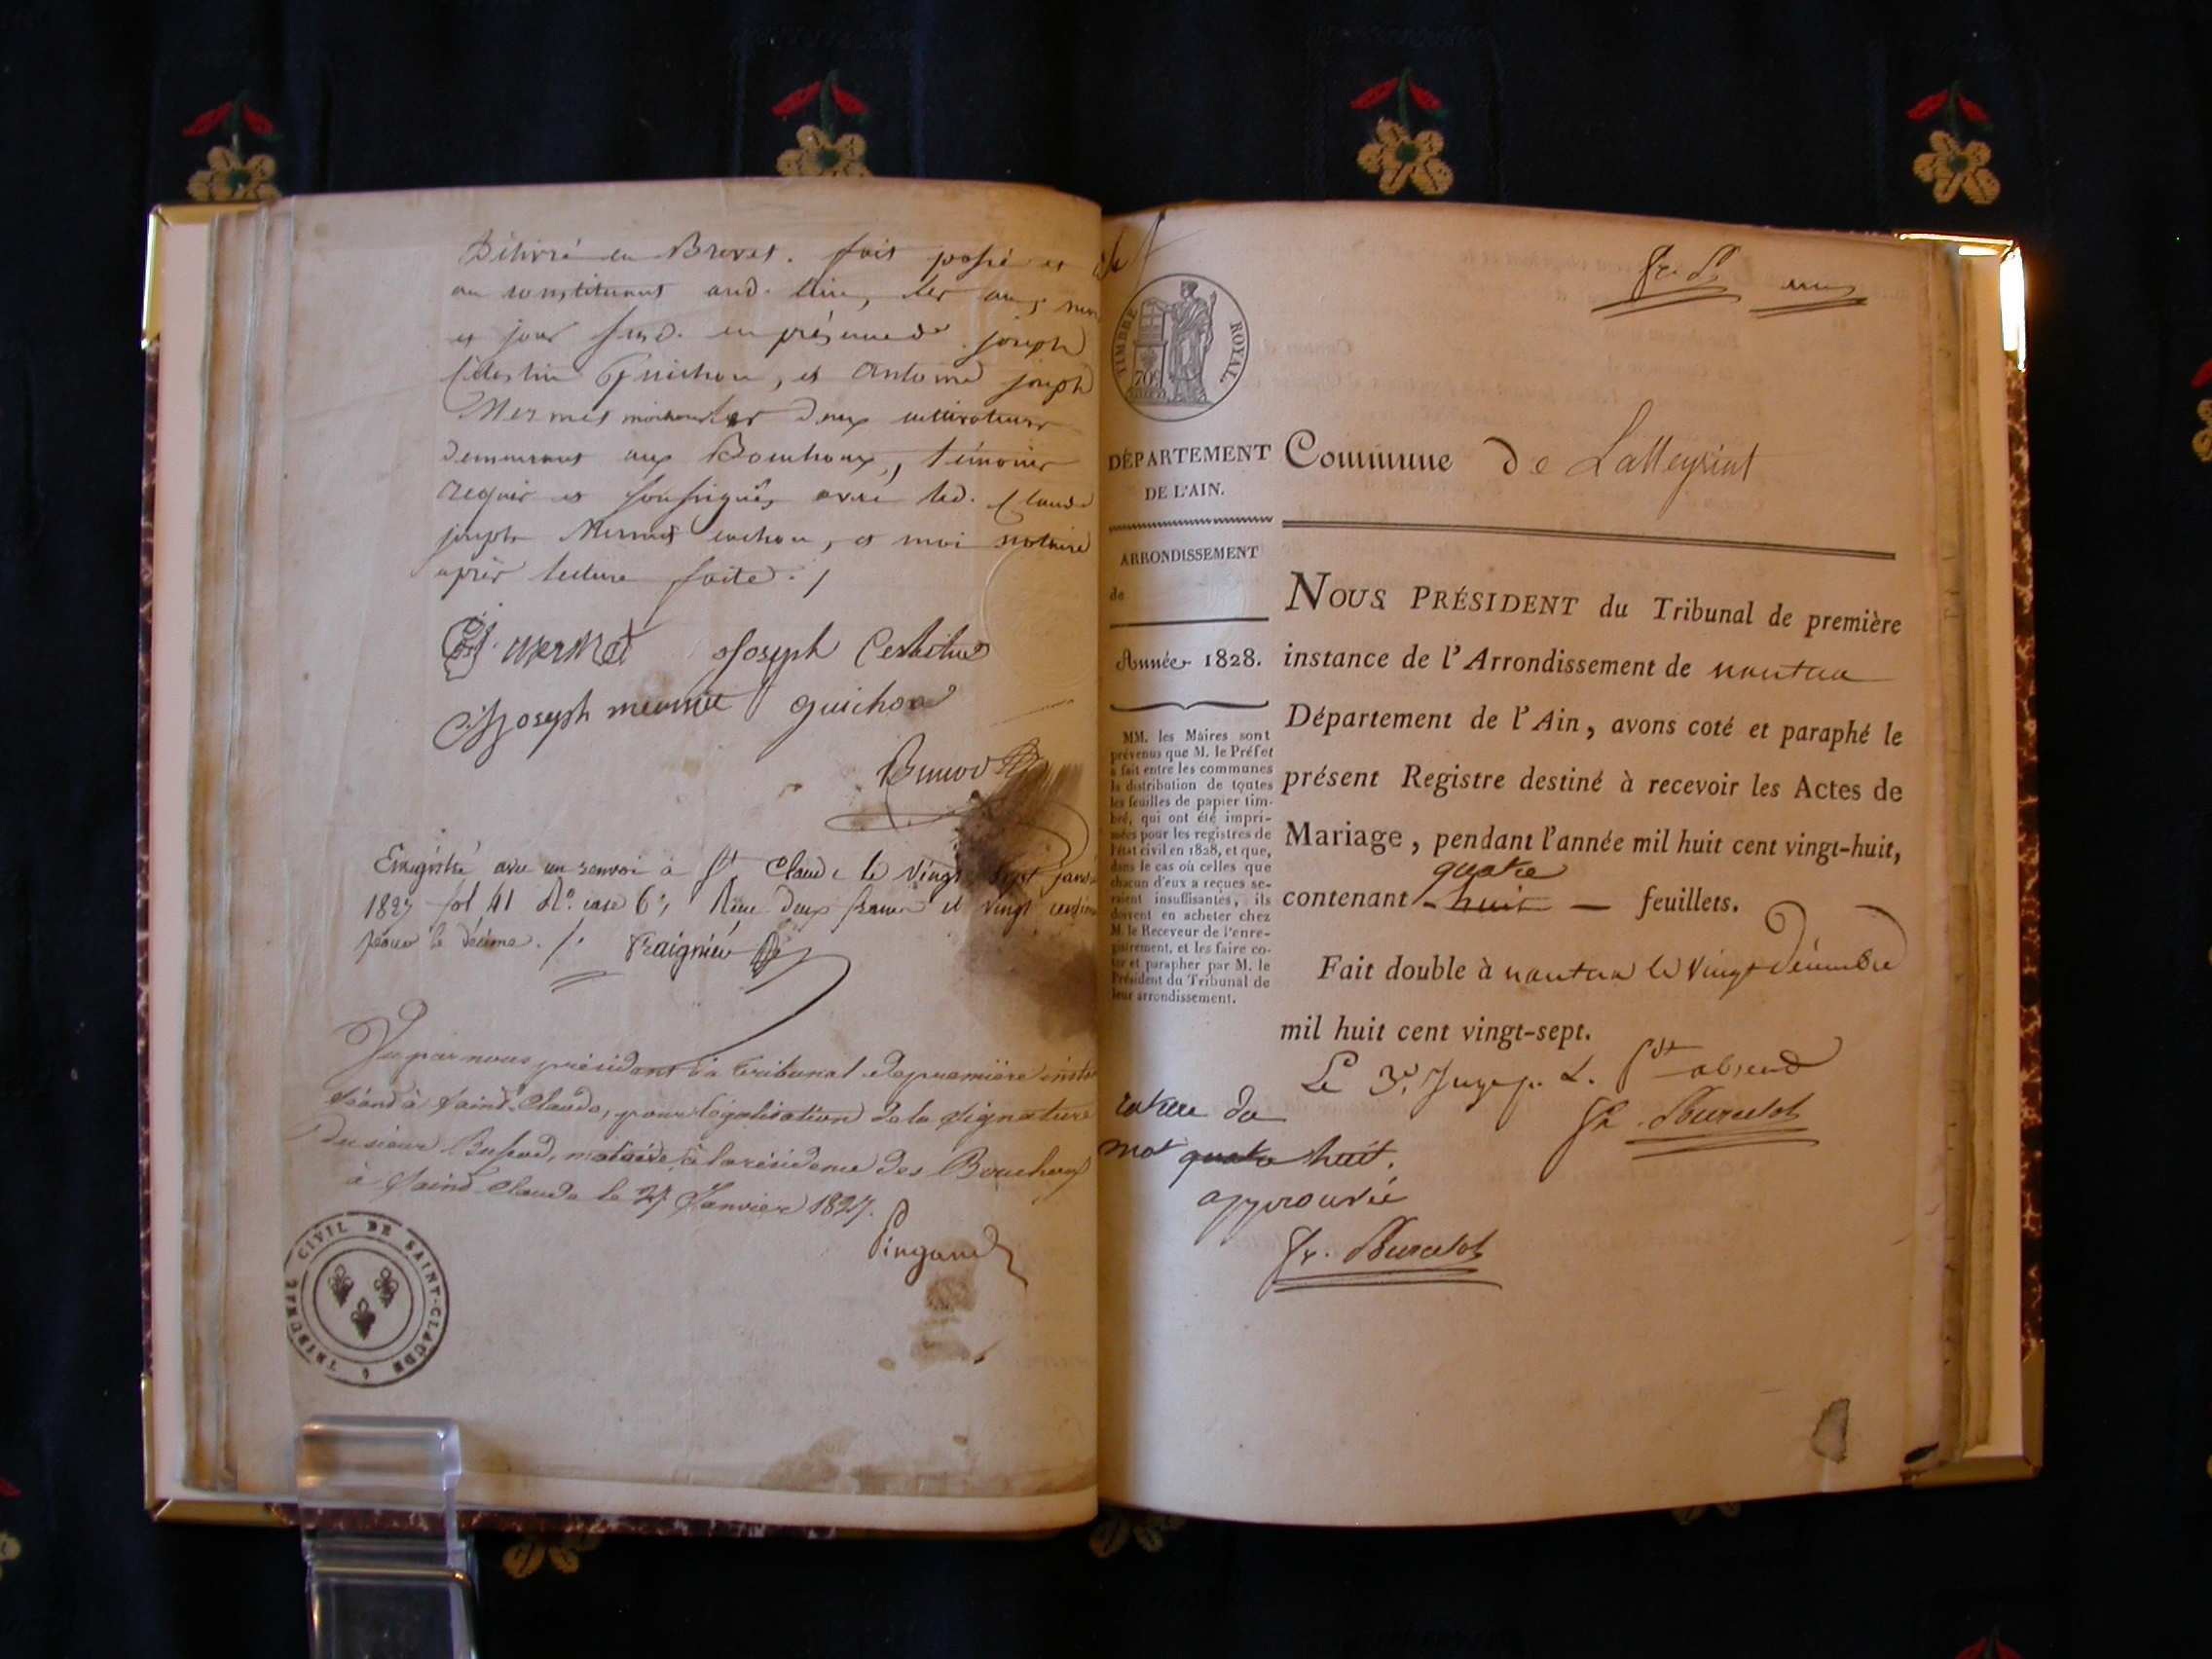 Délivré en Brevet. fait passé et
au constituant aud. lieu, les an, mois
et jour susd. en présence de joseph
Célestin Guichon, et Antoine joseph
Mermet tous les deux cultivateurs
demeurant aux Bouchoux, témoins
requis et soussignés avec led. Claude
joseph Mermet cochon, et moi notaire
après lecture faite. /
Mermet Joseph Celestin
joseph mermet guichon
Enregistré avec un renvoi à St Claude le Vingt sept janv
1827 fol 41 Ro. case 6e, Reçu deux francs et vingt centimes
pour le décime. /.
Vu par nous président du tribunal de première inst
séand à Saint-Claude, pour légalisation de la signature
du sieur notaire à la résidence des Bouchoux
à Saint-Claude le 27 Janvier 1827.
TRIBUNAL CIVIL DE SAINT-CLAUDE
TIMBRE ROYAL.
70c
DÉPARTEMENT
DE L'AIN.
ARRONDISSEMENT
de
Année 1828.
MM. les Maires sont
prévenus que M. le Préfet
a fait entre les communes
la distribution de toutes
les feuilles de papier tim-
bré, qui ont été impri-
mées pour les registres de
l'état civil en 1828, et que,
dans le cas où celles que
chacun d'eux a reçues se-
raient insuffisantes, ils
doivent en acheter chez
M. le Receveur de l'enre-
gistrement, et les faire co-
ter et parapher par M. le
Président du Tribunal de
leur arrondissement.
Commune de Lalleyriat
NOUS PRÉSIDENT du Tribunal de première
instance de l'Arrondissement de nantua
Département de l'Ain, avons coté et paraphé le
présent Registre destiné à recevoir les Actes de
Mariage, pendant l'année mil huit cent vingt-huit,
quatre
contenant huit — feuillets.
Fait double à nantua le vingt décembre
mil huit cent vingt-sept.
Le 3e. Juge p. L. Pdt absend
fr. Burcelot
rature du
mot quatre huit.
approuvée
fr. Burcelot